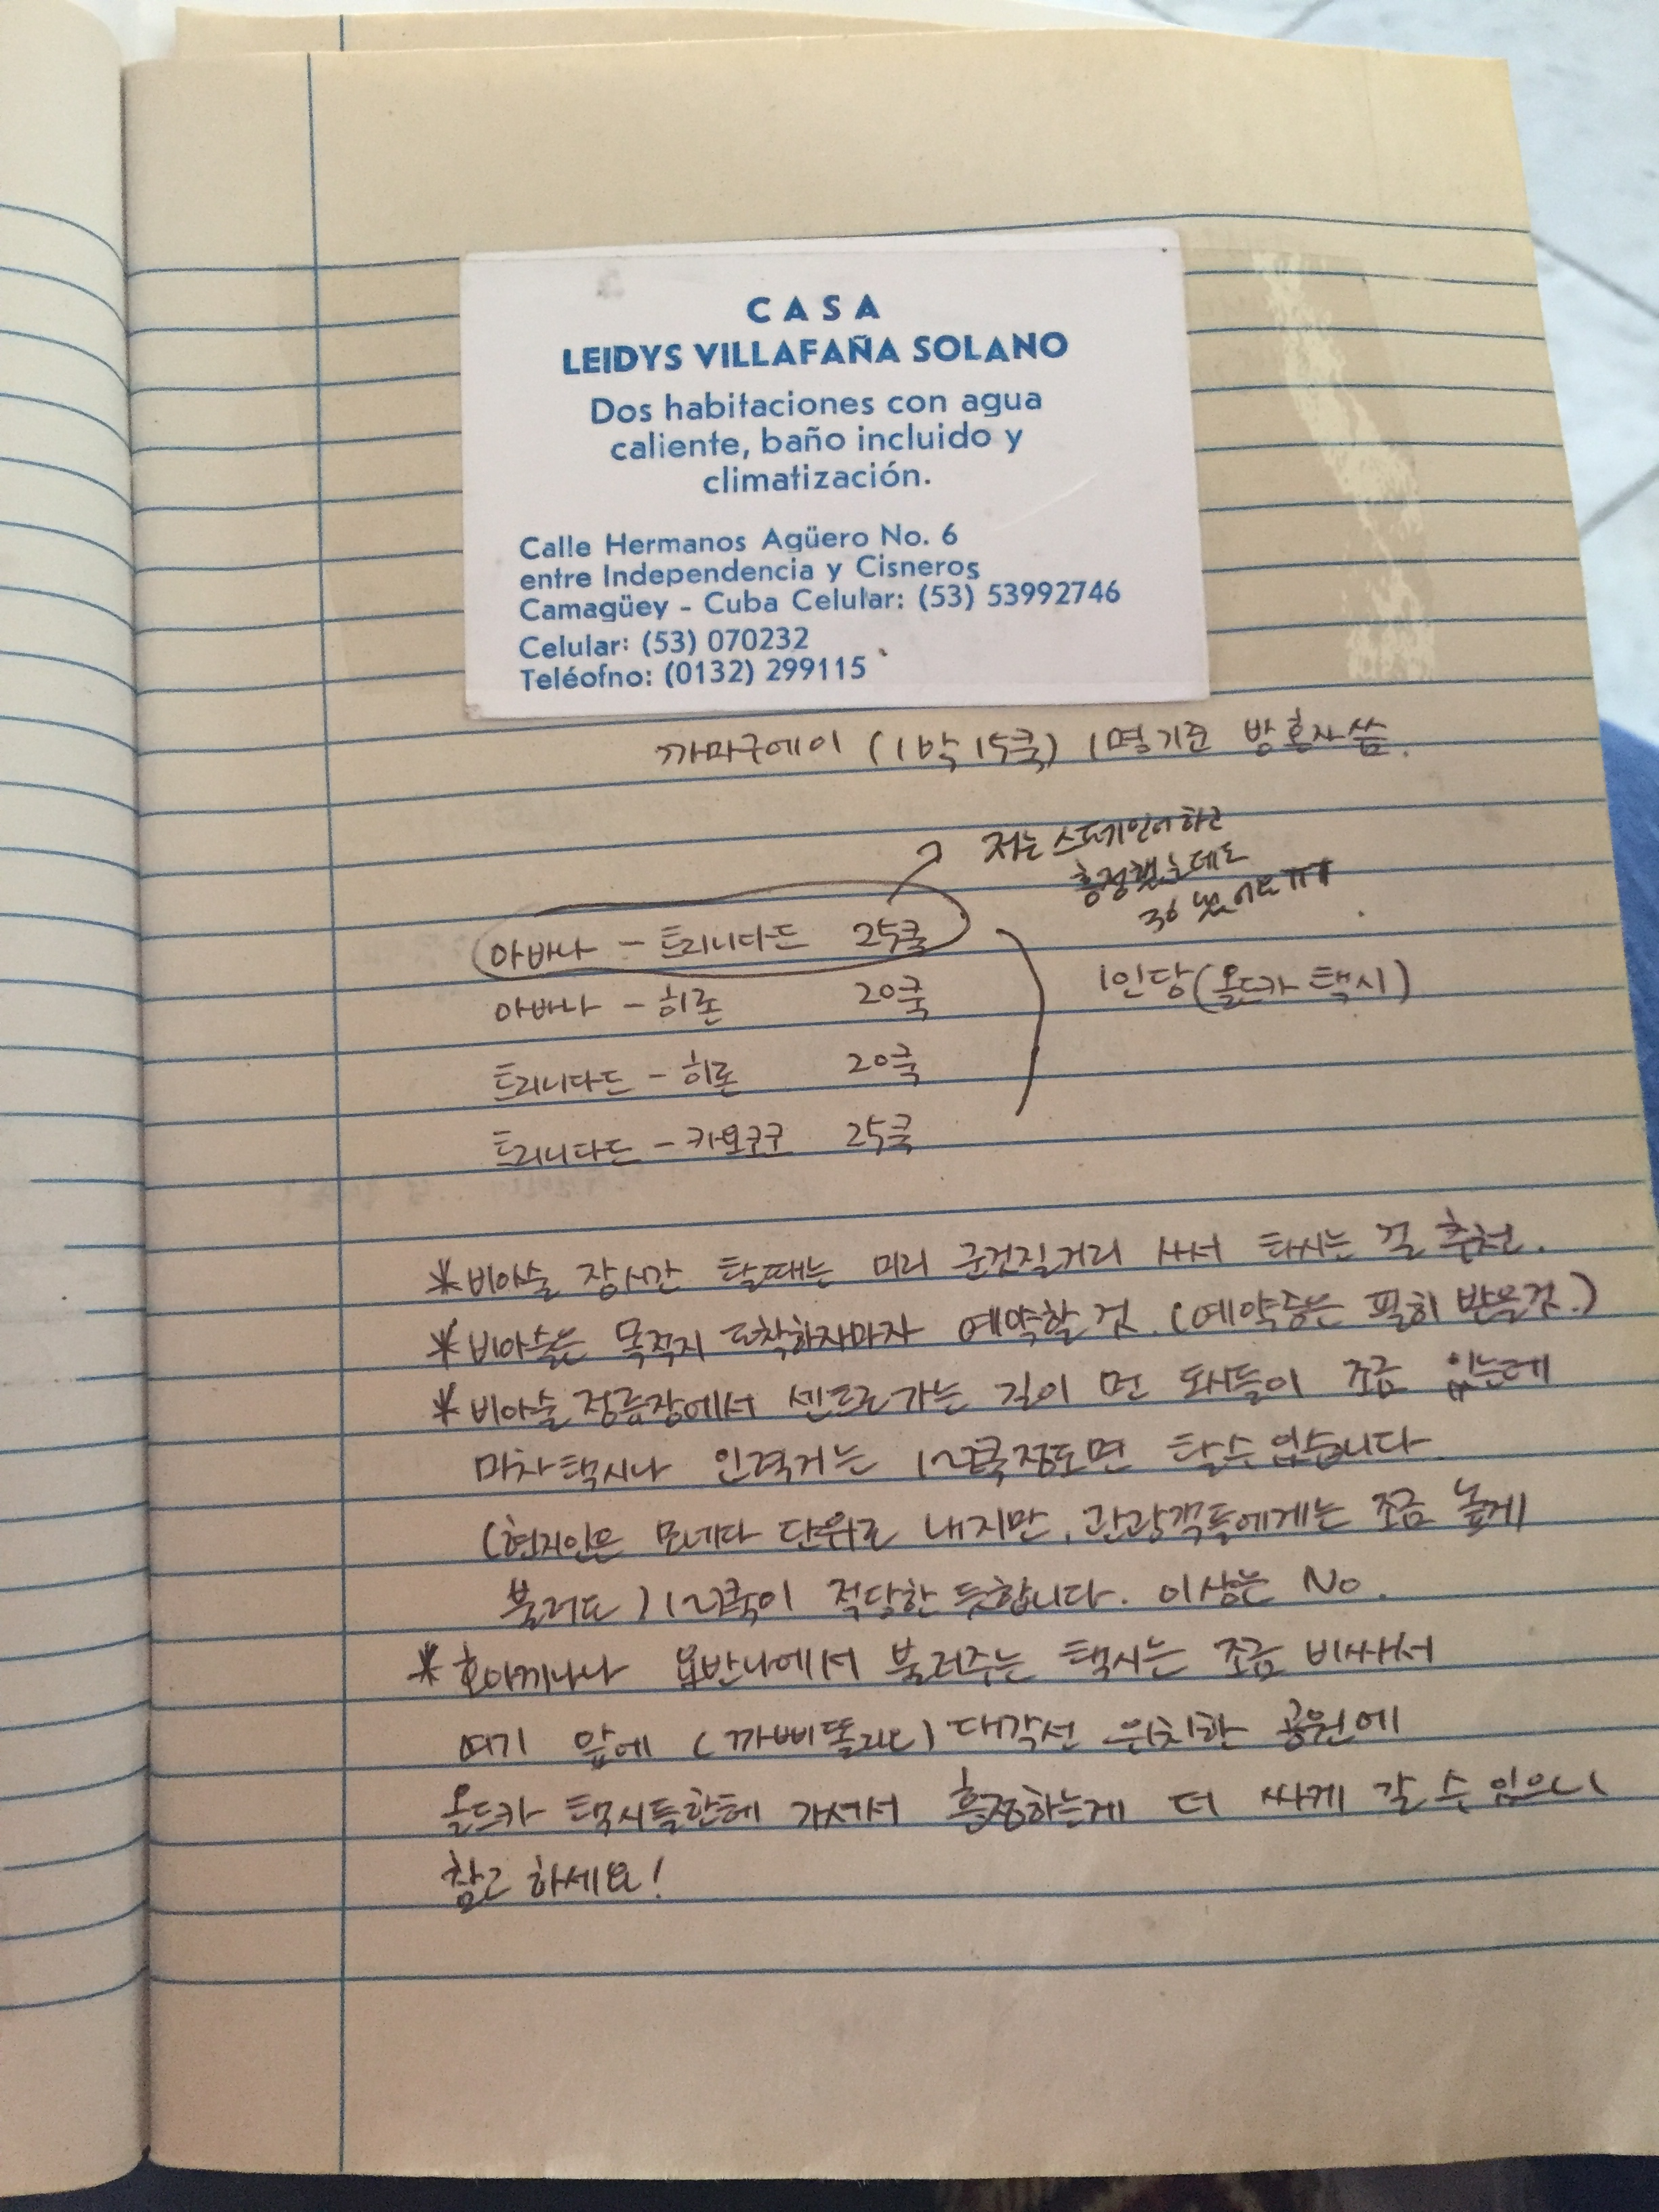 CASA
LEIDYS VILLAFAÑA SOLANO
Dos habitaciones con agua
caliente, baño incluido y
climatización.
Calle Hermanos Agüero No. 6
entre Independencia y Cisneros
Camagüey - Cuba Celular: (53) 53992746
Celular: (53) 070232
Teléofno: (0132) 299115
까마구에이 (1박 15쿡) 1명기준 방 혼자 씀.
저는 스페인어하고
흥정했는데도
30 냈어요 ㅠㅠ
아바나 - 트리니다드 25쿡
아바나 - 히론 20쿡
1인당(올드카 택시)
트리니다드 - 히론 20쿡
트리니다드 - 카요코코 25쿡
*비아술 장시간 탈때는 미리 군것질거리 사서 타시는 걸 추천.
*비아술은 목적지 도착하자마자 예약할 것. (예약증은 필히 받을것.)
*비아술 정류장에서 센트로 가는 길이 먼 도시들이 조금 있는데
마차택시나 인력거는 1~2쿡정도면 탈수있습니다.
(현지인은 모네다 단위로 내지만, 관광객들에게는 조금 높게
불러도) 1~2쿡이 적당한 듯합니다. 이상은 No.
*호아끼나나 요반나에서 불러주는 택시는 조금 비싸서
여기 앞에 (까삐똘리오) 대각선 위치한 공원에
올드카 택시들한테 가셔서 흥정하는게 더 싸게 갈 수 있으니
참고하세요!